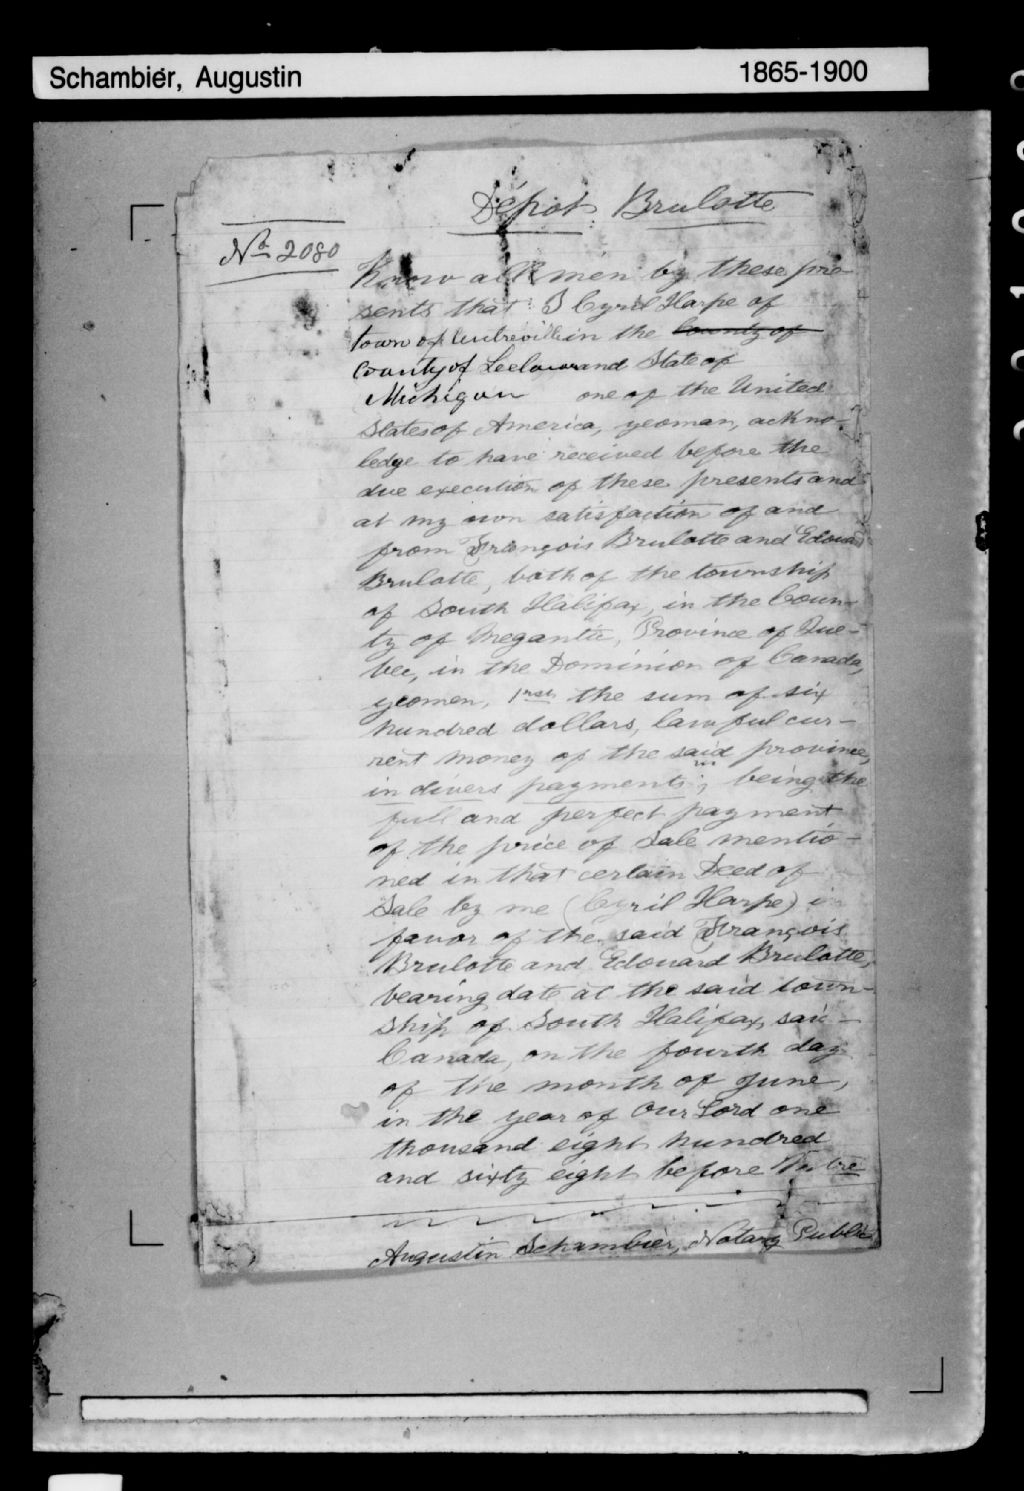 Schambier, Augustin 1865-1900
Dépot. Brulotte
No 2080
Know all men by these pre-
sents that I Cyril Harpe of
town of in the county of
county of Leelanau and State of
Michigan one of the United
States of America, yeoman, ackno-
ledge to have received before the
due execution of these presents and
at my own satisfaction of and
from François Brulotte and Edouard
Brulotte, both of the township
of South Halifax, in the Coun-
ty of Megantic, Province of Que-
bec, in the Dominion of Canada,
yeomen, 1rst, the sum of six
hundred dollars, lawful cur-
rent money of the said province,
in divers payments; being the
full and perfect payment
of the price of Sale mentio-
ned in that certain Deed of
Sale by me (Cyril Harpe) in
favor of the said François
Brulotte and Edouard Brulotte,
bearing date at the said town-
ship of South Halifax, said
Canada, on the fourth day
of the month of June,
in the year of Our Lord one
thousand eight hundred
and sixty eight before
Augustin Schambier, Notary Public